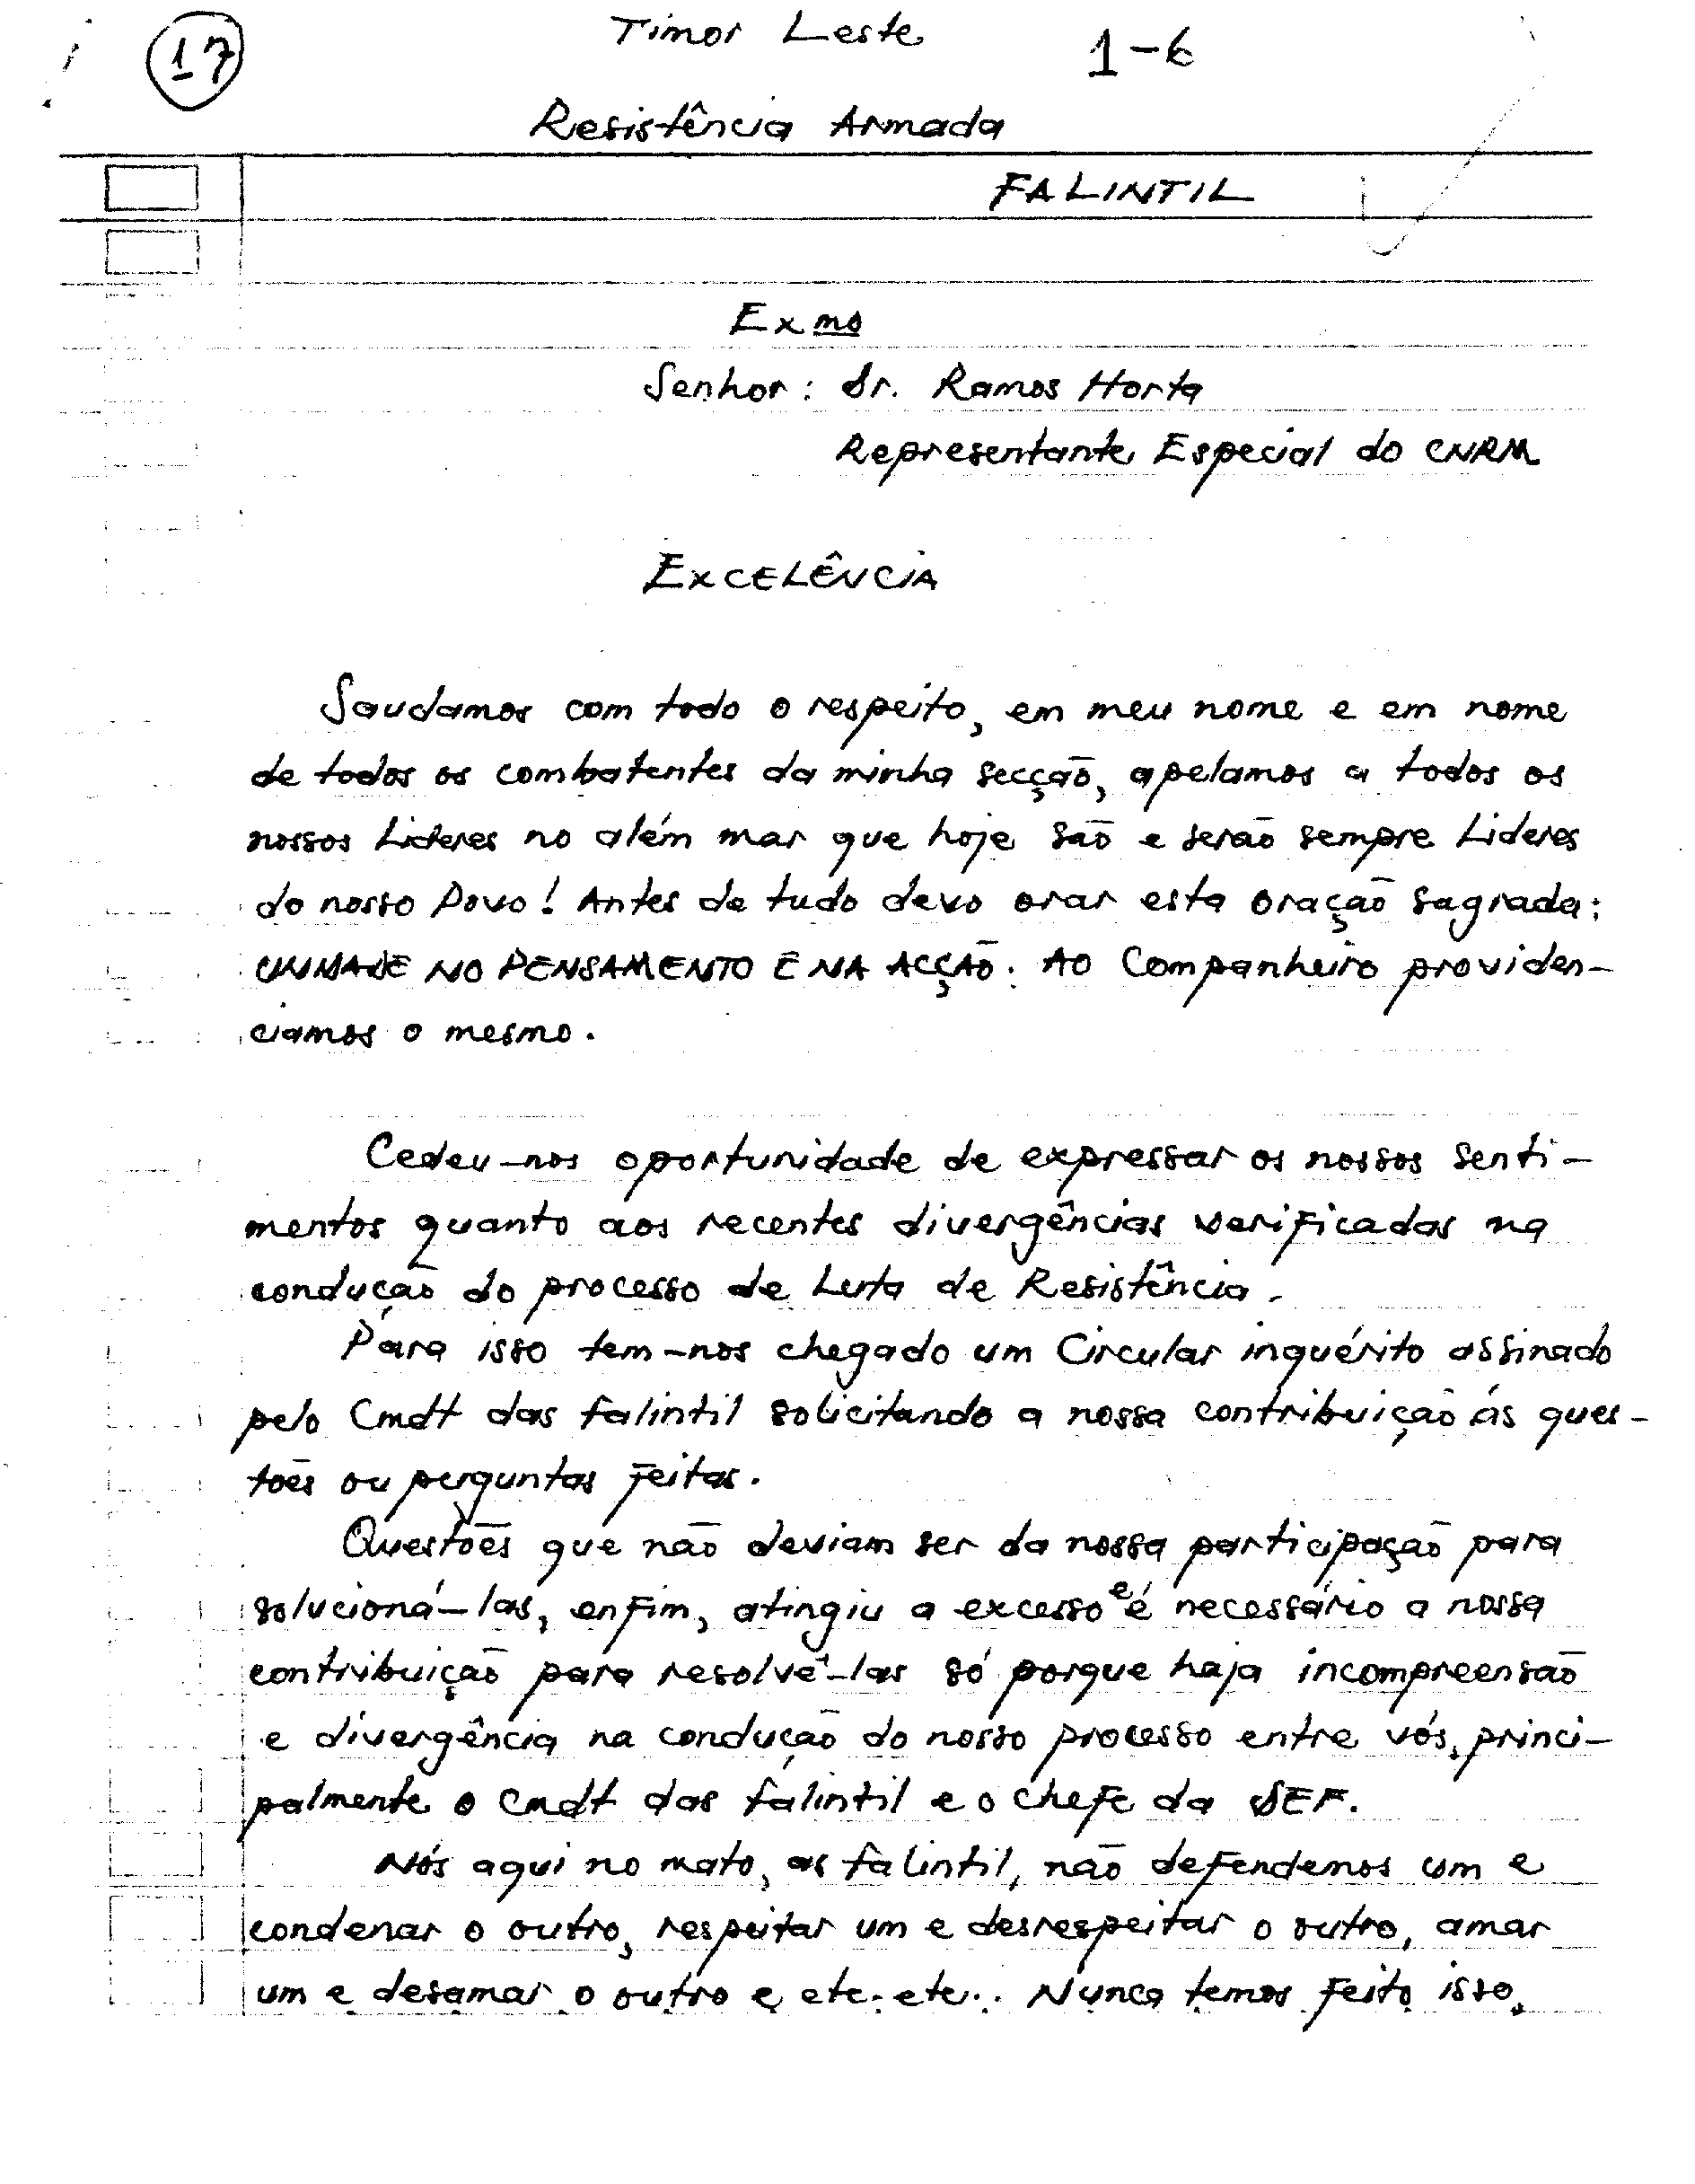 17
Timor Leste
1-6
Resistência Armada
FALINTIL
Exmo
Senhor: Dr. Ramos Horta
Representante Especial do CNRM
EXCELÊNCIA
Saudamos com todo o respeito, em meu nome e em nome
de todos os combatentes da minha secção, apelamos a todos os
nossos Lideres no além mar que hoje são e serão sempre Lideres
do nosso Povo! Antes de tudo devo orar esta oração sagrada:
UNIDADE NO PENSAMENTO E NA ACÇÃO. Ao Companheiro providen-
ciamos o mesmo.
Cedeu-nos oportunidade de expressar os nossos senti-
mentos quanto aos recentes divergências verificadas na
condução do processo de Luta de Resistência.
Para isso tem-nos chegado um Circular inquérito assinado
pelo Cmdt das falintil solicitando a nossa contribuição ás ques-
tões ou perguntas feitas.
Questões que não deviam ser da nossa participação para
solucioná-las, enfim, atingiu a excesso e é necessário a nossa
contribuição para resolvê-las só porque haja incompreensão
e divergência na condução do nosso processo entre vós, princi-
palmente o Cmdt das falintil e o chefe da DEF.
Nós aqui no mato, as falintil, não defendemos um e
condenar o outro, respeitar um e desrespeitar o outro, amar
um e desamar o outro e etc. etc.. Nunca temos feito isso,